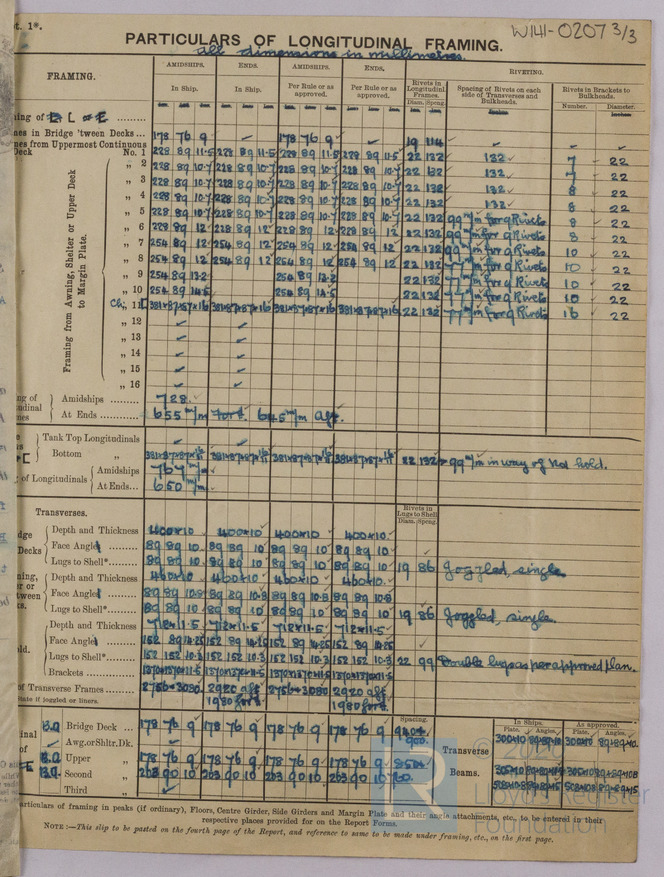 t. 1*.
W141-0207 3/3
PARTICULARS OF LONGITUDINAL FRAMING.
all dimensions in millimetres.
FRAMING.
AMIDSHIPS. ENDS. AMIDSHIPS. ENDS. RIVETING.
In Ship. In Ship. Per Rule or as approved. Per Rule or as approved.
Rivets in Longitudinal Frames. Spacing of Rivets on each side of Transverses and Bulkheads. Rivets in Brackets to Bulkheads.
Diam. Spcng. Number. Diameter.
ing of
nes in Bridge 'tween Decks ... 178 76 9 178 76 9 19 114
nes from Uppermost Continuous
Deck No. 1 228 89 11.5 228 89 11.5 228 89 11.5 228 89 11.5 22 132 132 7 22
Framing from Awning, Shelter or Upper Deck to Margin Plate.
„ 2 228 89 10.7 228 89 10.7 228 89 10.7 228 89 10.7 22 132 132 7 22
„ 3 228 89 10.7 228 89 10.7 228 89 10.7 228 89 10.7 22 132 132 8 22
„ 4 228 89 10.7 228 89 10.7 228 89 10.7 228 89 10.7 22 132 132 8 22
„ 5 228 89 10.7 228 89 10.7 228 89 10.7 228 89 10.7 22 132 99 m/m for 9 Rivets 8 22
„ 6 228 89 12 228 89 12 228 89 12 228 89 12 22 132 99 m/m for 9 Rivets 8 22
„ 7 254 89 12 254 89 12 254 89 12 254 89 12 22 132 99 m/m for 9 Rivets 10 22
„ 8 254 89 12 254 89 12 254 89 12 254 89 12 22 132 77 m/m for 9 Rivets 10 22
„ 9 254 89 13.2 254 89 13.2 22 132 77 m/m for 9 Rivets 10 22
„ 10 254 89 14.5 254 89 14.5 22 132 77 m/m for 9 Rivets 10 22
Ch. 11 22 132 77 m/m for 9 Rivets 16 22
„ 12
„ 13
„ 14
„ 15
„ 16
ng of Amidships 728.
tudinal
nes At Ends 655 m/m Ford. 645 m/m aft.
Tank Top Longitudinals
Bottom „ 22 132 99 m/m in way of No1 hold.
g of Longitudinals Amidships 767 m/m
At Ends... 650 m/m
Transverses. Rivets in Lugs to Shell
Diam. Spcng.
dge Depth and Thickness 400×10 400×10 400×10 400×10
Decks Face Angle 89 89 10 89 89 10 89 89 10 89 89 10
Lugs to Shell* 89 89 10 89 89 10 89 89 10 89 89 10 19 86 Joggled, single
ning, Depth and Thickness 460×10 460×10 460×10 460×10
er or Face Angle 89 89 10.8 89 89 10.8 89 89 10.8 89 89 10.8
tween Lugs to Shell* 89 89 10 89 89 10 89 89 10 89 89 10 19 86 Joggled, single.
ks. Depth and Thickness 712×11.5 712×11.5 712×11.5 712×11.5
Face Angle 152 89 14.25 152 89 14.25 152 89 14.25 152 89 14.25
ld. Lugs to Shell* 152 152 10.3 152 152 10.3 152 152 10.3 152 152 10.3 22 99 Double lugs as per approved plan.
Brackets 1370×1370×11.5 1370×1370×11.5 1370×1370×11.5 1370×1370×11.5
of Transverse Frames 2920 aft 2920 aft
State if joggled or liners. 1980 ford. 1980 ford.
Spacing. In Ships. As approved.
Plate. Angles. Plate. Angles.
inal Bridge Deck ... 178 76 9 178 76 9 178 76 9 178 76 9
Awg. or Shltr. Dk. 900. Transverse
of Upper „ 178 76 9 178 76 9 178 76 9 178 76 9
Second „ 203 90 10 203 90 10 203 90 10 203 90 10 760. Beams.
Third „
articulars of framing in peaks (if ordinary), Floors, Centre Girder, Side Girders and Margin Plate and their angle attachments, etc., to be entered in their
respective places provided for on the Report Forms.
NOTE :—This slip to be pasted on the fourth page of the Report, and reference to same to be made under framing, etc., on the first page.
Lloyd's Register
Foundation